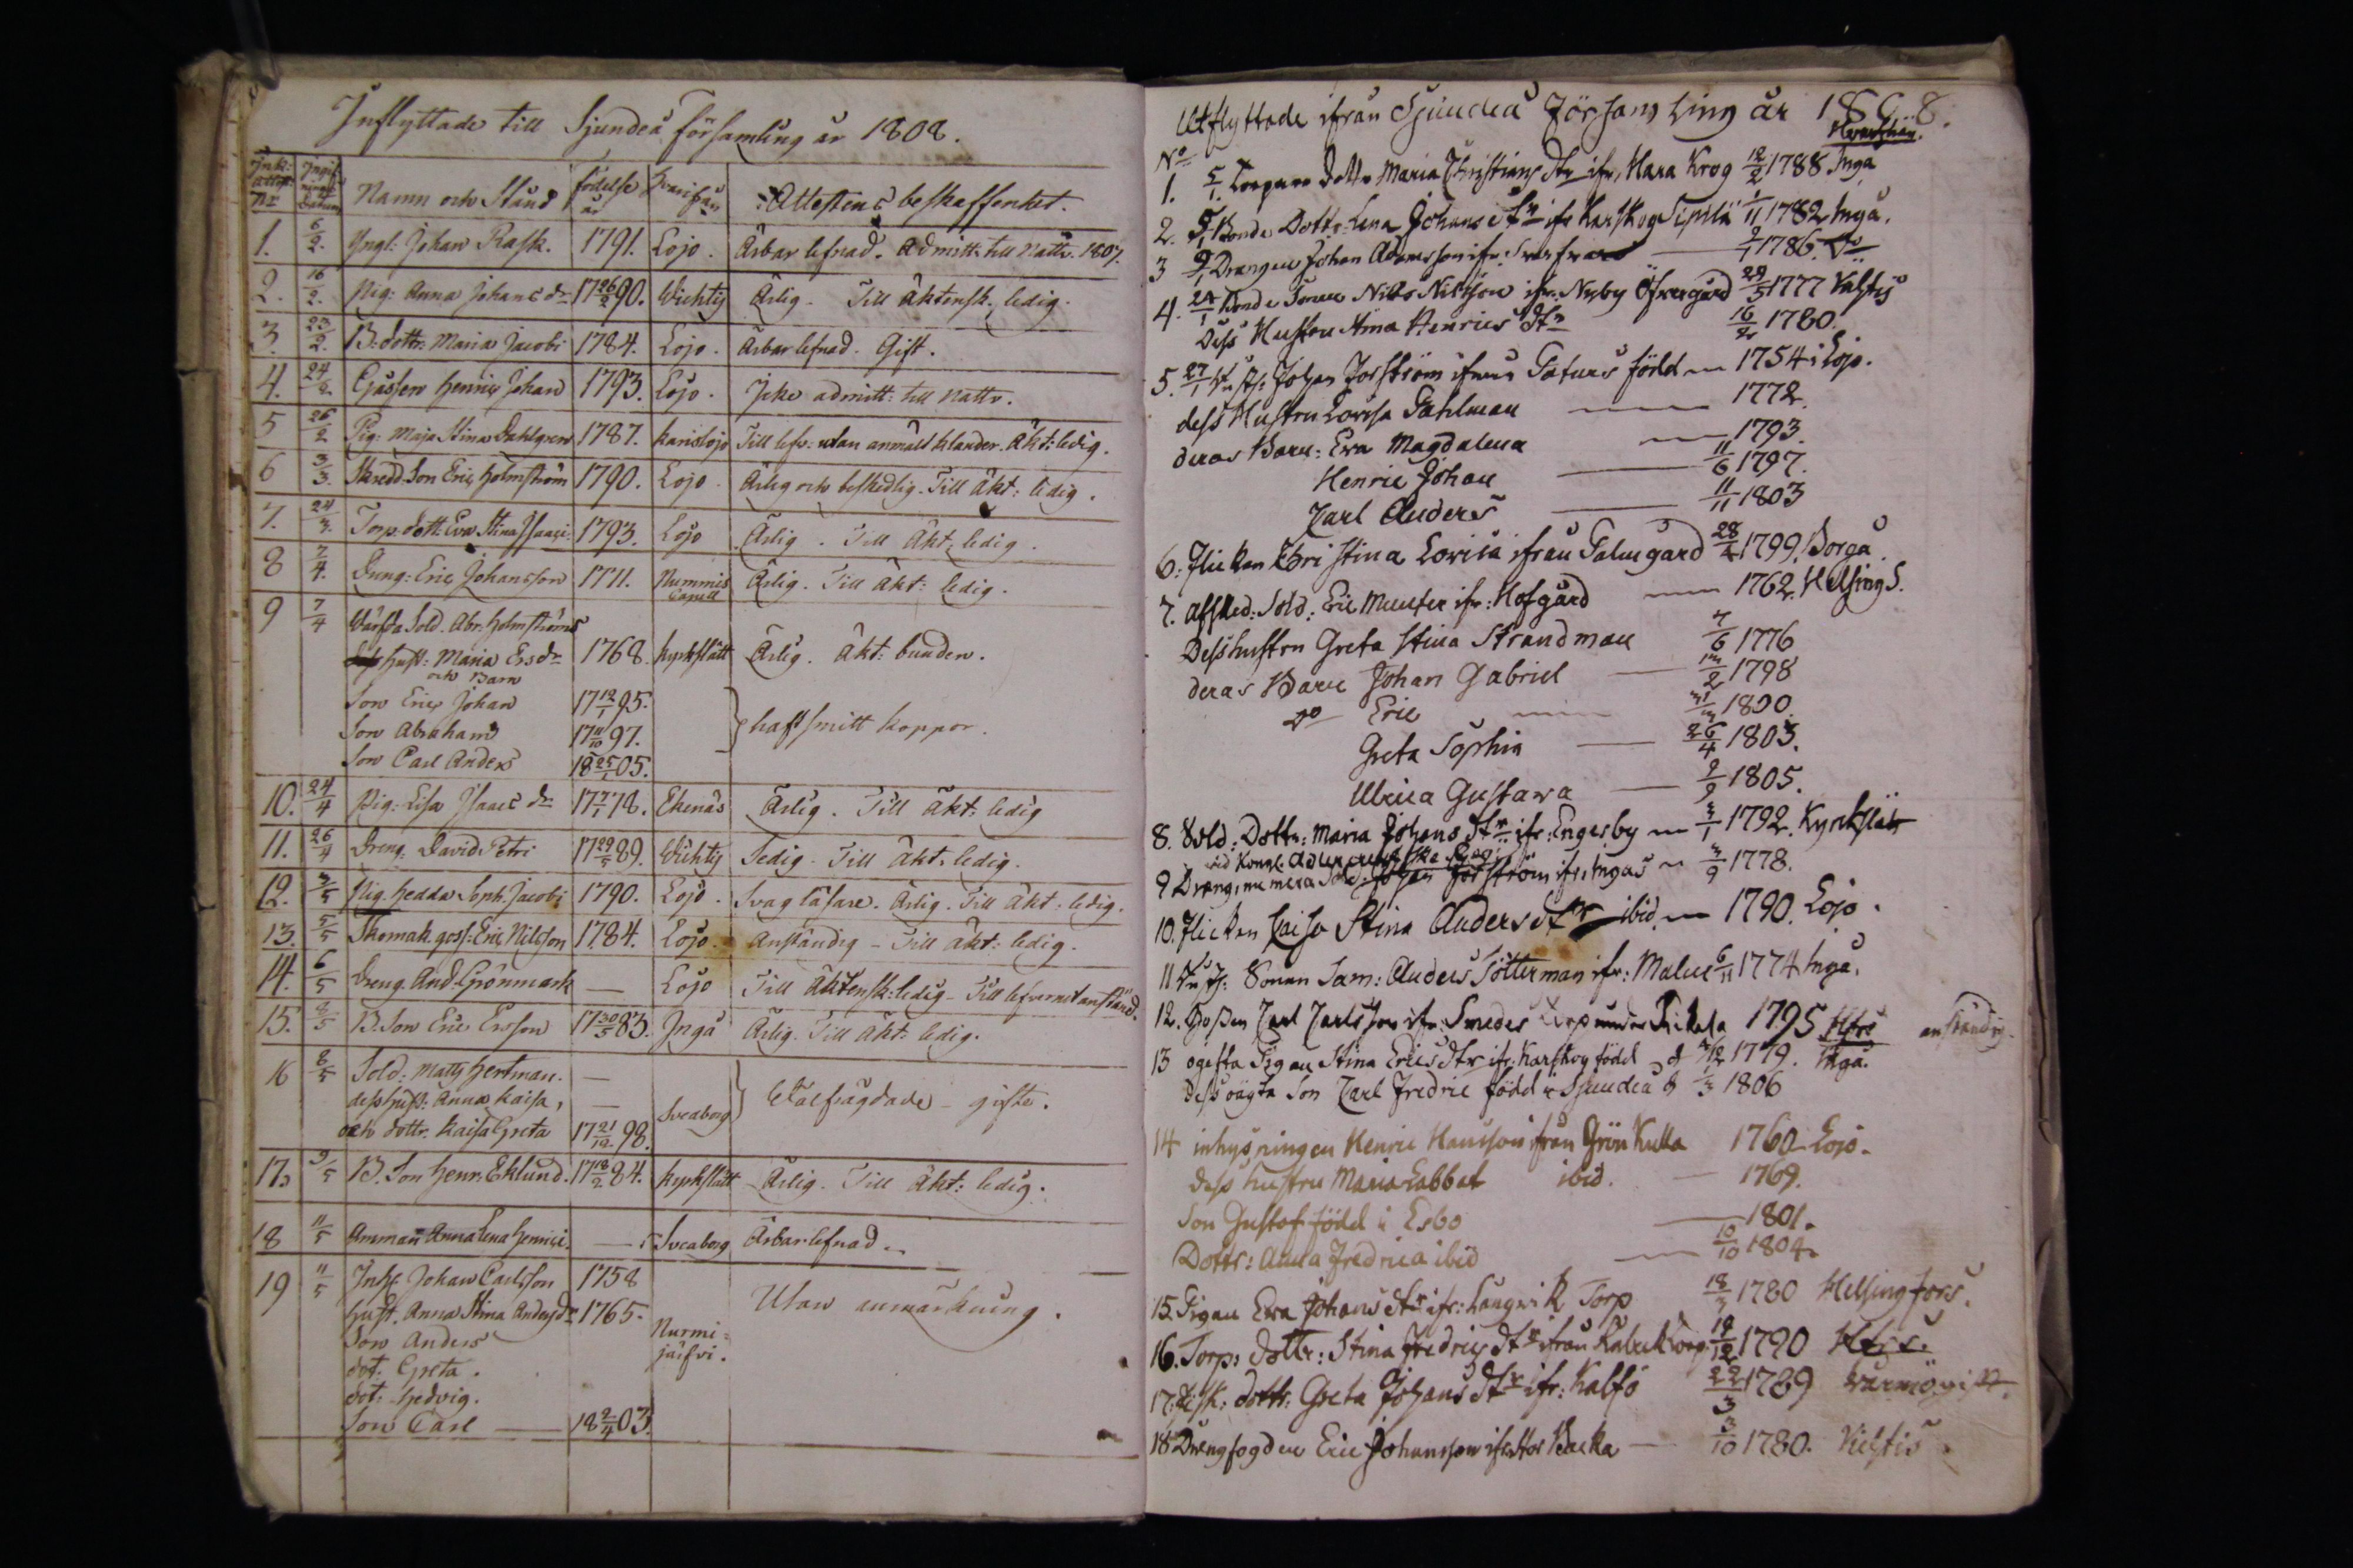 Inflyttade till Sjundeå församling år 1808.
Namn och Stånd födelse år hvarifrån Attestens beskaffenhet.
1. 6/2. Yngl: Johan Rask. 1791. Lojo. Ärbar lefnad. Admitt: till nattv. 1807.
2. 16/2. Pig: Anna Johans dr 17 26/2 90. Wichtis Ärlig - Till äktensk. ledig.
3. 23/2. B: dottr: Maria Jacobi 1784. Lojo. Ärbar lefnad. Gift.
4. 24/2 Gåssen Henric Johan 1793. Lojo. Icke admitt: till nattv.
5 26/2 Pig: Maja Stina Dahlgren 1787. Karislojo Till lefv: utan anmält klander. Äkt: ledig.
6 3/3. Skredd. Son Eric Holmström 1790. Lojo. Ärlig och beskedlig. Till äkt: ledig.
7. 24/3. Torp. dott: Eva Stina Isaaci. 1793. Lojo Ärlig. Till äkt: ledig.
8 7/4. Dreng: Eric Johansson 1771. Nummis Capell Ärlig. Till äkt: ledig.
9 7/4 Värfda Sold. Abr. Holmströms
hust: Maria Ersdr 1768. Kyrkslätt Ärlig. Äkt: bunden.
och Barn
Son Eric Johan 17 12/1 95.
Son Abraham 17 11/10 97. haft smitt koppor.
Son Carl Anders 18 25/1 05.
10. 24/4 Pig: Lisa Isaacs dr 17 7/1 78. Ekenäs Ärlig. Till äkt: ledig
11. 26/4 Dreng: David Petri 17 29/5 89. Wichtis Sedig. Till äkt. ledig.
12. 3/5 Pig. Hedda Soph. Jacobi 1790. Lojo. Svag läsare. Ärlig. Till äkt: ledig.
13. 5/5 Skomak. gess: Eric Nilsson 1784. Lojo. Anständig - Till äkt: ledig.
14. 6/5 Dreng. And: Grönmark — Lojo Till äktensk: ledig - Till lefvernet anständ.
15. 8/5 B. Son Eric Ersson 17 30/5 83. Ingå Ärlig. Till äkt: ledig.
16 8/5 Sold: Matts Hertman. —
dess hust: Anna Kaisa, — Sveaborg Välfrägdade - gifte.
och dottr. Kaisa Greta 17 21/12 98.
17. 9/5 B. Son Henr. Eklund. 17 18/2 84. Kyrkslätt Ärlig. Till äkt: ledig.
18 11/5 Amman Anna Lena Henrici. — Sveaborg Ärbar lefnad.
19 11/5 Inh: Johan Carlsson 1758
hust. Anna Stina Anders dr 1765. Utan anmärkning.
Son Anders Nurmi-
dot: Greta. järfvi.
dot: Hedvig.
Son Carl — 18 2/4 03.
Utflyttade ifrån Sjundeå Församling år 1808.
No
1. 5/1 dottr Maria Christians dtr ifr. Hara Krog 12/2 1788 Ingå
2. 5/1 Bonde Dottr: Lena Johans dtr ifr Karskog Sipilä 1/11 1782 Ingå.
3 9/1 Drängen Johan Adamsson ifr. 2/1 1786. Do
4. 24/1 Bonde Sonen Nills Nilsson ifr. Nyby Öfvergård 29/5 1777
Dess Hustru Stina Henrics dtr 16/2 1780.
5. 27/1 Johan Forström ifrån född — 1754 i Lojo.
dess Hustru Lovisa Dahlman — 1772.
deras Barn: Eva Magdalena — 1793.
Henric Johan — 11/6 1797.
Carl Anders — 11/11 1803
6. Flickan Christina Lovisa ifrån Palmgård 28/2 1799. Borgå.
7. Afsked: Sold: Eric Munter ifr: Hofgård — 1762. Helsing S.
Dess hustru Greta Stina Strandman 7/6 1776
deras Barn Johan Gabriel — 1798
Do Eric — 1800.
Greta Sophia — 26/4 1803.
Ulrica Gustava — 2/9 1805.
8. Sold: Dottr: Maria Johans dtr ifr: Engisby — 3/1 1792. Kyrkslätt
9 Dräng, nu mera Sold. Johan Forström ifr, Ingås — 3/9 1778.
10. Flickan Caisa Stina Anders dtr ibid — 1790. Lojo.
11 Sonen Sam: Anders Sötterman ifr: Malm 6/11 1774 Ingå.
12. Gossen Carl Carlsson ifr: Smeds Torp under Pickala 1795 Hfrs anständig.
13 ogifta Pigan Stina Erics dtr ifr: Karskog född d 1779. Ingå.
dess oägta Son Carl Fredric född i Sjundeå d 1806
14 inhysningen Henric Hansson ifrån Grön Kulla 1760 Lojo.
dess hustru Maria Labbat ibid. — 1769.
Son Gustaf född i Esbo — 1801.
Dottr: Anna Fredrica ibid — 10/10 1804.
15. Pigan Eva Johans dtr ifr: Långvik Torp 18/3 1780 Helsingfors.
16. Torp: dottr: Stina Fredrics dtr ifrån 19/12 1790 Hfrs.
17. Fisk: dottr: Greta Johans dtr ifr: Kalfö 22/3 1789
18 Drengfogden Eric Johansson ifr Stor Backa — 3/10 1780. Vichtis